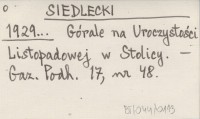 SIEDLECKI
1929... Górale na Uroczystości
Listopadowej w Stolicy. —
Gaz. Podh. 17, nr 48.